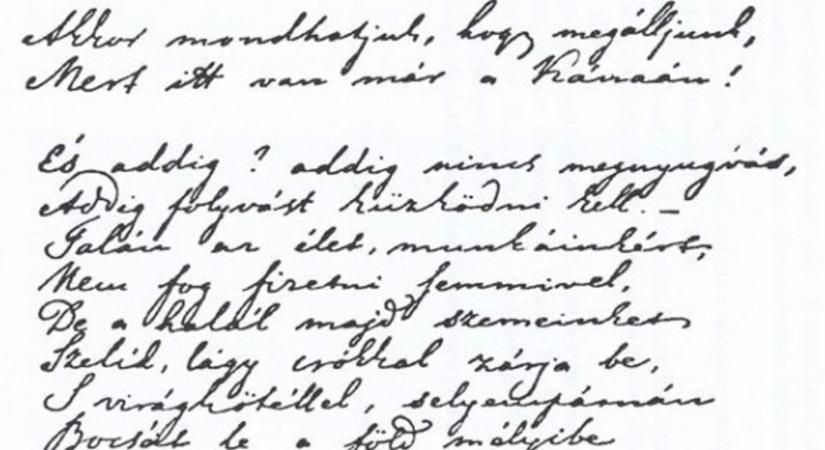 Akkor mondhatjuk, hogy megálljunk,
Mert itt van már a Kánaán!
És addig? addig nincs megnyugvás,
Addig folyvást küzködni kell. –
Talán az élet, munkáinkért,
Nem fog fizetni semmivel,
De a halál majd szemeinket
Szelid, lágy csókkal zárja be,
S virágkötéllel, selyempárnán
Bocsát le a föld mélyibe